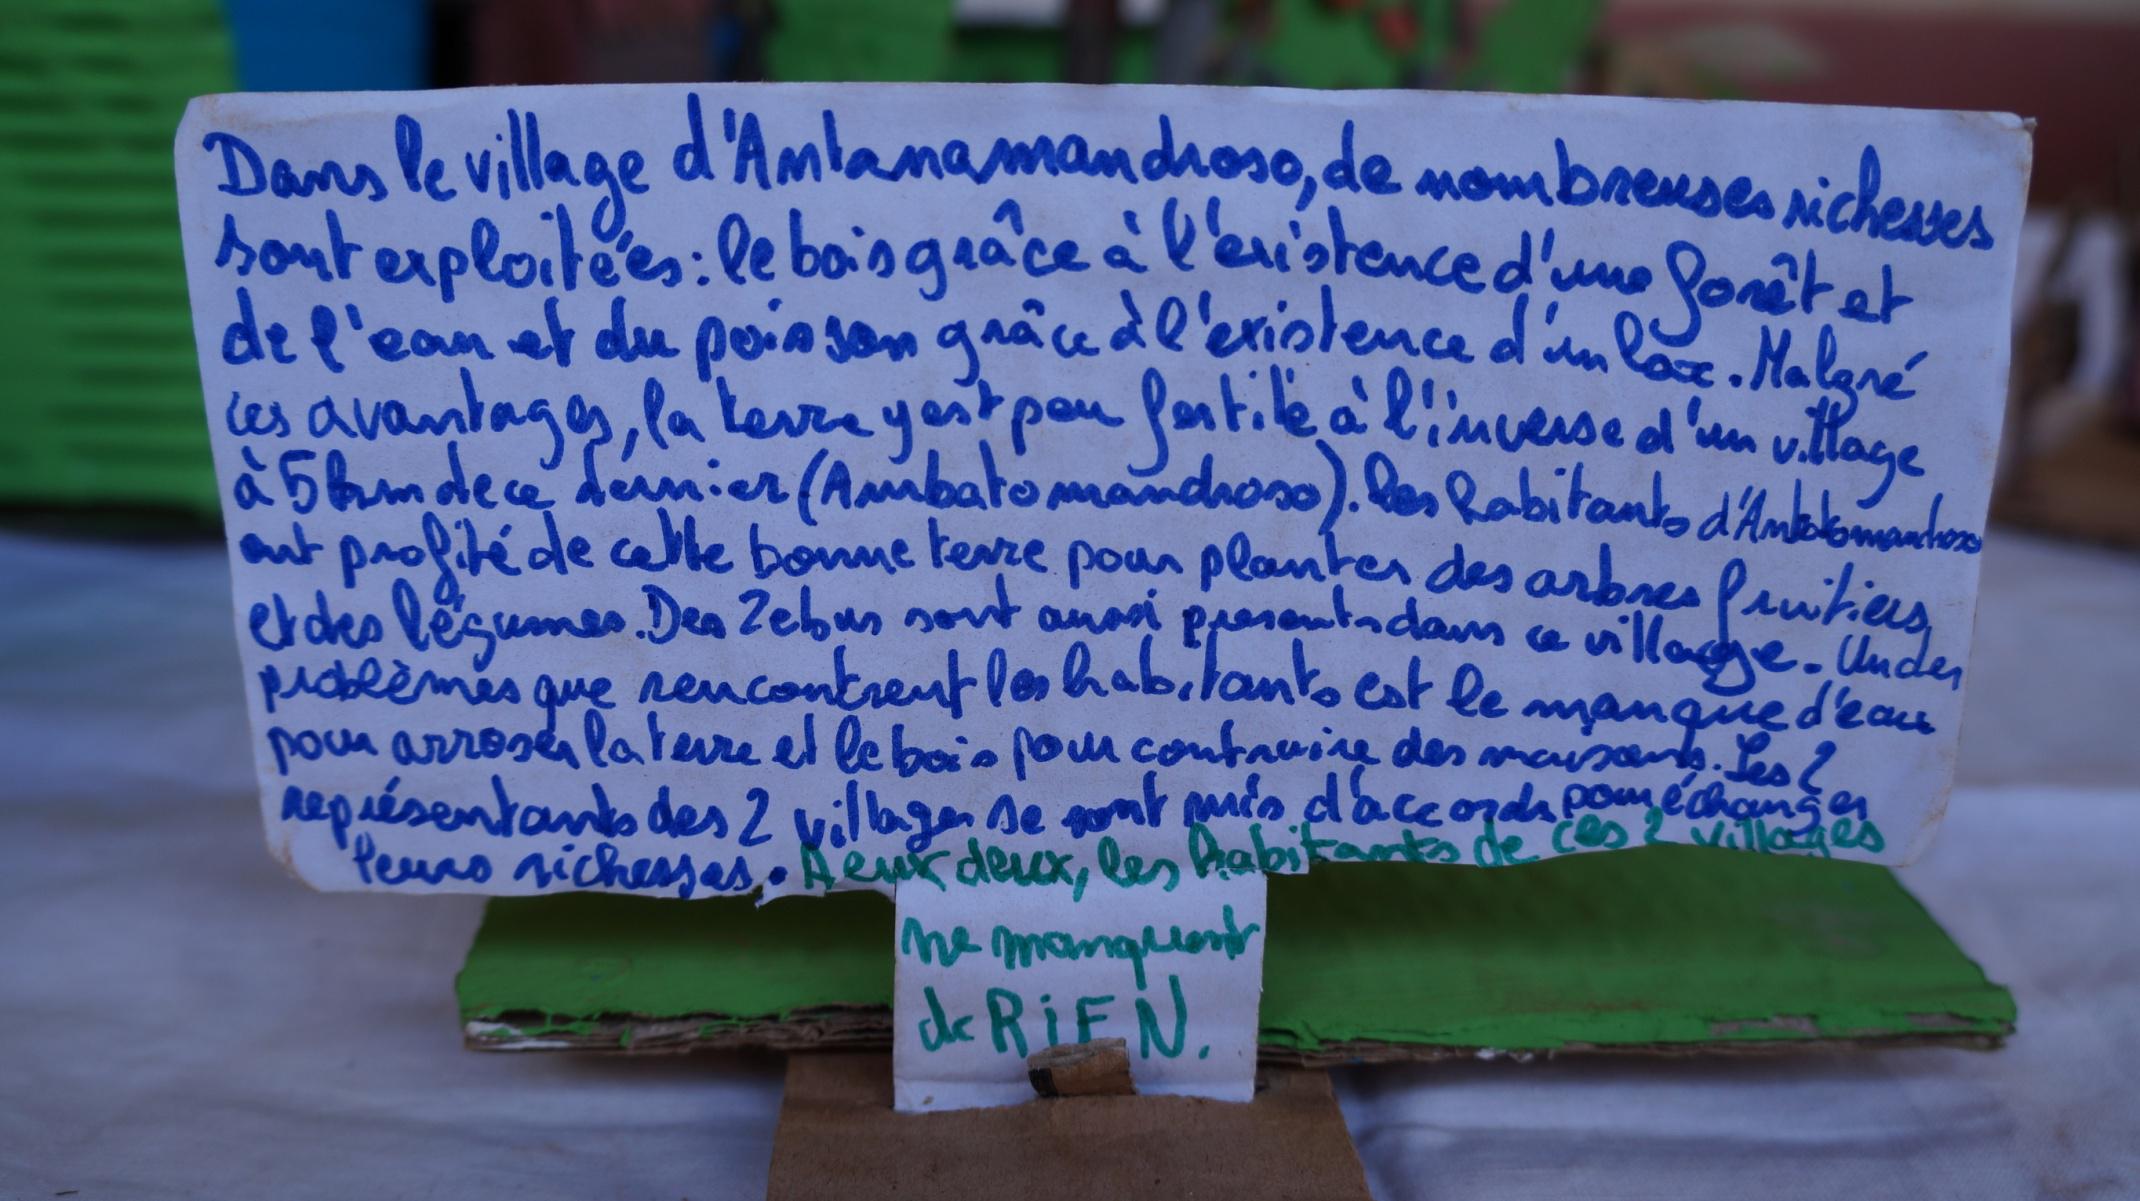 Dans le village d'Antanamandroso, de nombreuses richesses
sont exploitées : le bois grâce à l'existence d'une forêt et
de l'eau et du poisson grâce à l'existence d'un lac. Malgré
ces avantages, la terre y est peu fertile à l'inverse d'un village
à 5km de ce dernier (Ambatomandroso). Les habitants d'Ambatomandroso
ont profité de cette bonne terre pour planter des arbres fruitiers
et des légumes. Des Zebus sont aussi présents dans ce village. Un des
problèmes que rencontrent les habitants est le manque d'eau
pour arroser la terre et le bois pour construire des maisons. Les 2
représentants des 2 villages se sont mis d'accords pour échanger
leurs richesses. A eux deux, les habitants de ces 2 villages
ne manquent
de RiEN.